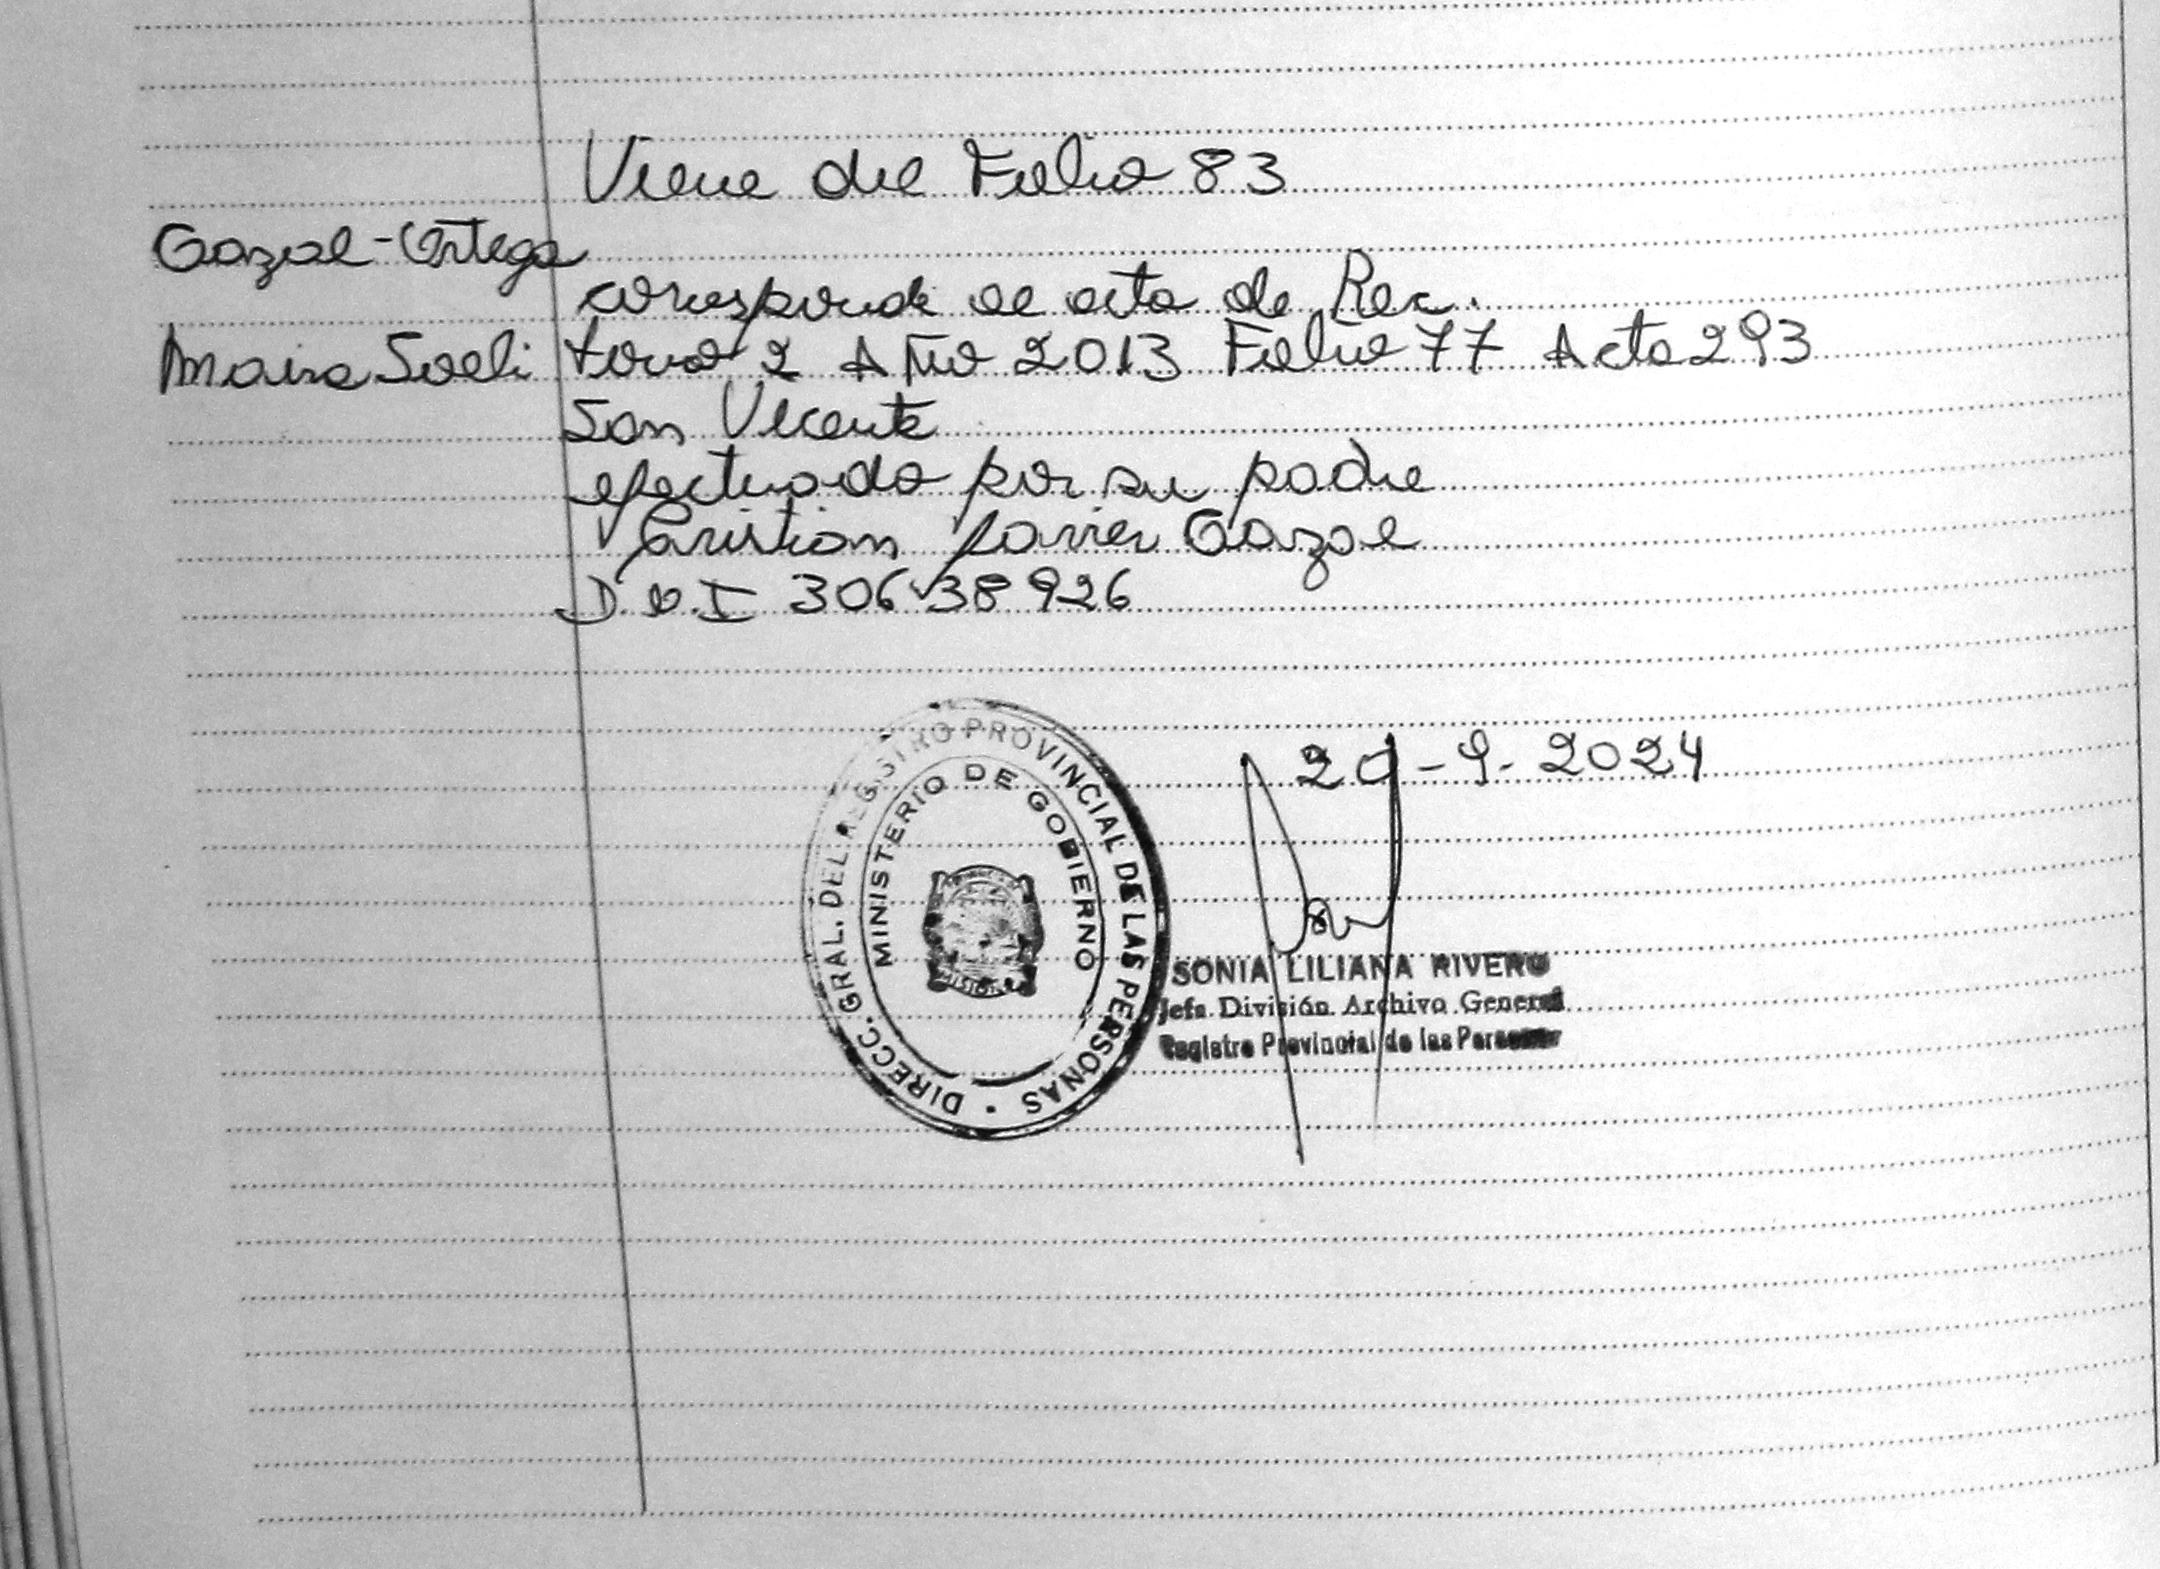 Viene del Folio 83
Gazal-Ortega
corresponde al acta de Rec.
Maira Soeli tomo 2 Año 2013 Folio 77 Acta 293
San Vicente
efectuado por su padre
Cristian Javier Gazal
D.N.I 30638926
20-9-2024
DIRECC. GRAL. DEL REGISTRO PROVINCIAL DE LAS PERSONAS
MINISTERIO DE GOBIERNO
MISIONES
SONIA LILIANA RIVERO
Jefa División Archivo General
Registro Provincial de las Personas